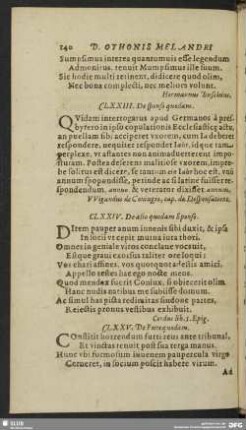 240 D. OTHONIS MELANDRI
Sumpsimus interea quamvis esse legendum
Admonitus, tenuit Mumpsimus ille suum.
Sic hodie multi retinent, didicere quod olim,
Nec bona complecti, nec meliora volunt.
Hermannus
CLXXIII. De sponso quodam.
QVidam interrogatus apud Germanos à pres-
bytero in ipso copulationis Ecclesiasticæ actu,
an puellam sibi acciperet uxorem, cum Ja deberet
respondere, nequiter respondet Jahr, idque tam
perplexe, ut astantes non animadverterent impo-
sturam. Postea deserens malitiose uxorem, impro-
be solitus est dicere, se tantùm ein Jahr hoc est, vnū
annum spopondisse, perinde ac si latinè fuisset re-
spondendum, annuo, & veterator dixisset annum.
CLXXIV. De alio quodam Sponso.
DItem pauper anum juvenis sibi duxit, & ipsa
In socii vt cepit munia jura thori.
Omnes in geniale viros conclave vocavit,
Esque graui exorsus taliter ore loqui:
Vos chari affines, vos quoquot adestis amici,
Appello testes hac ego nocte meos.
Quod mendax fuerit Coniux, si objecerit olim
Hanc nudis natibus me subiisse domum.
Ac simul has picta redimitas sindone partes,
Reiectis pronus vestibus exhibuit.
Cordus lib. 3. Epig.
CLXXV. De Furequodam.
COnstitit horrendum furti reus ante tribunal,
Et vinctas tenuit post sua terga manus.
Hunc vbi formosum iuvenem paupercula virgo
Cerneret, in socium poscit habere virum.
Ad
SLUB
DFG